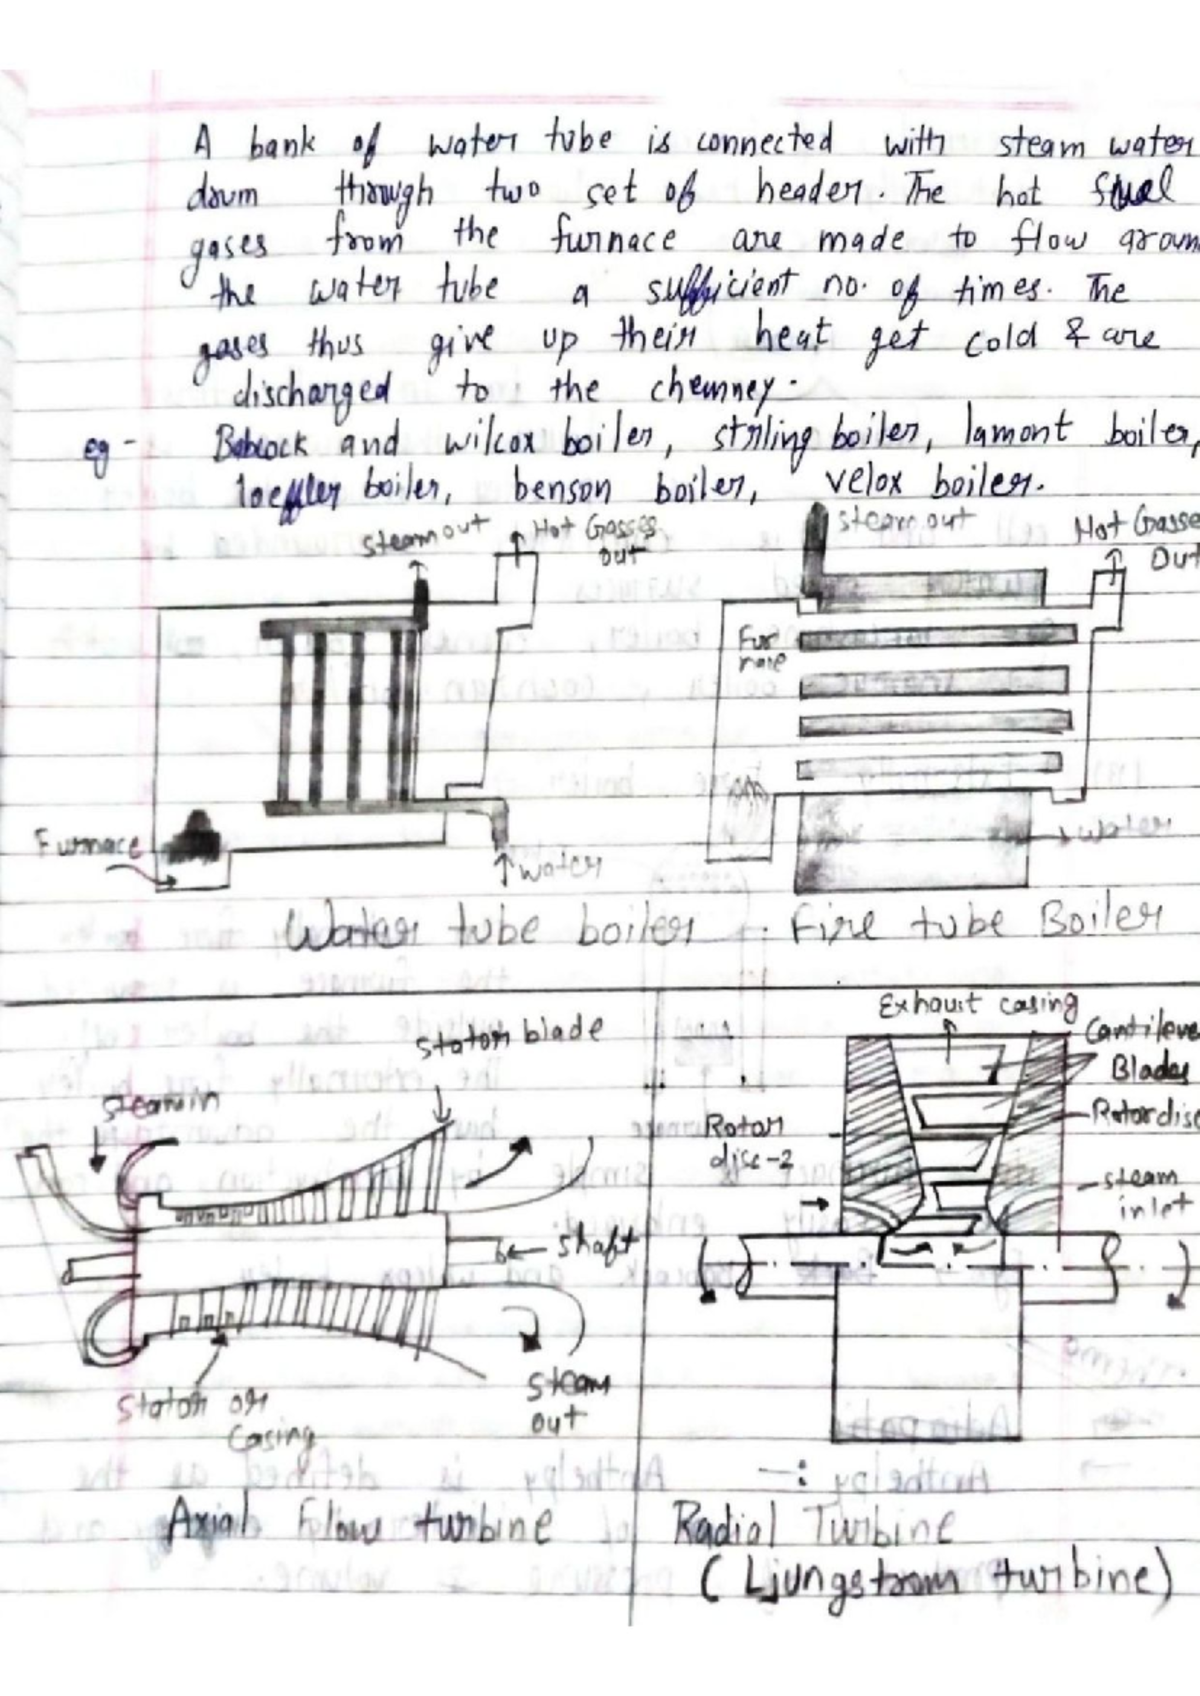 A bank of water tube is connected with steam water
drum through two set of header. The hot fuel
gases from the furnace are made to flow aroun
the water tube a sufficient no. of times. The
gases thus give up their heat get cold & are
discharged to the chemney.
eg - Babcock and wilcox boiler, stirling boiler, lamont boiler,
loeffler boiler, benson boiler, velox boiler.
steam out
Hot Gasses
out
steam out
Hot Gasse
Out
Fur
nace
Furnace
water
water
Water tube boiler
Fire tube Boiler
Stator blade
steam in
shaft
Stator or
Casing
Steam
out
Axial Flow turbine
Exhaust casing
Cantileve
Blades
Rotor disc
Rotor
disc-2
steam
inlet
Radial Turbine
(Ljungstrom turbine)